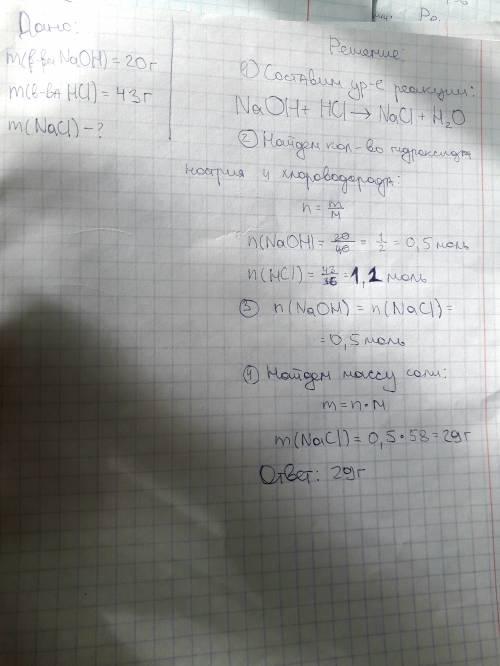 Дано:
m(в-ва NaOH) = 20г
m(в-ва HCl) = 43г
m(NaCl) - ?
Ро.
Решение:
1) Составим ур-е реакции:
NaOH + HCl → NaCl + H₂O
2) Найдем кол-во гидроксида
натрия и хлороводорода:
n = m/M
n(NaOH) = 20/40 = 1/2 = 0,5 моль
n(HCl) = 43/36 = 1,2 моль
3) n(NaOH) = n(NaCl) =
= 0,5 моль
4) Найдем массу соли:
m = n • M
m(NaCl) = 0,5 • 58 = 29г
Ответ: 29г